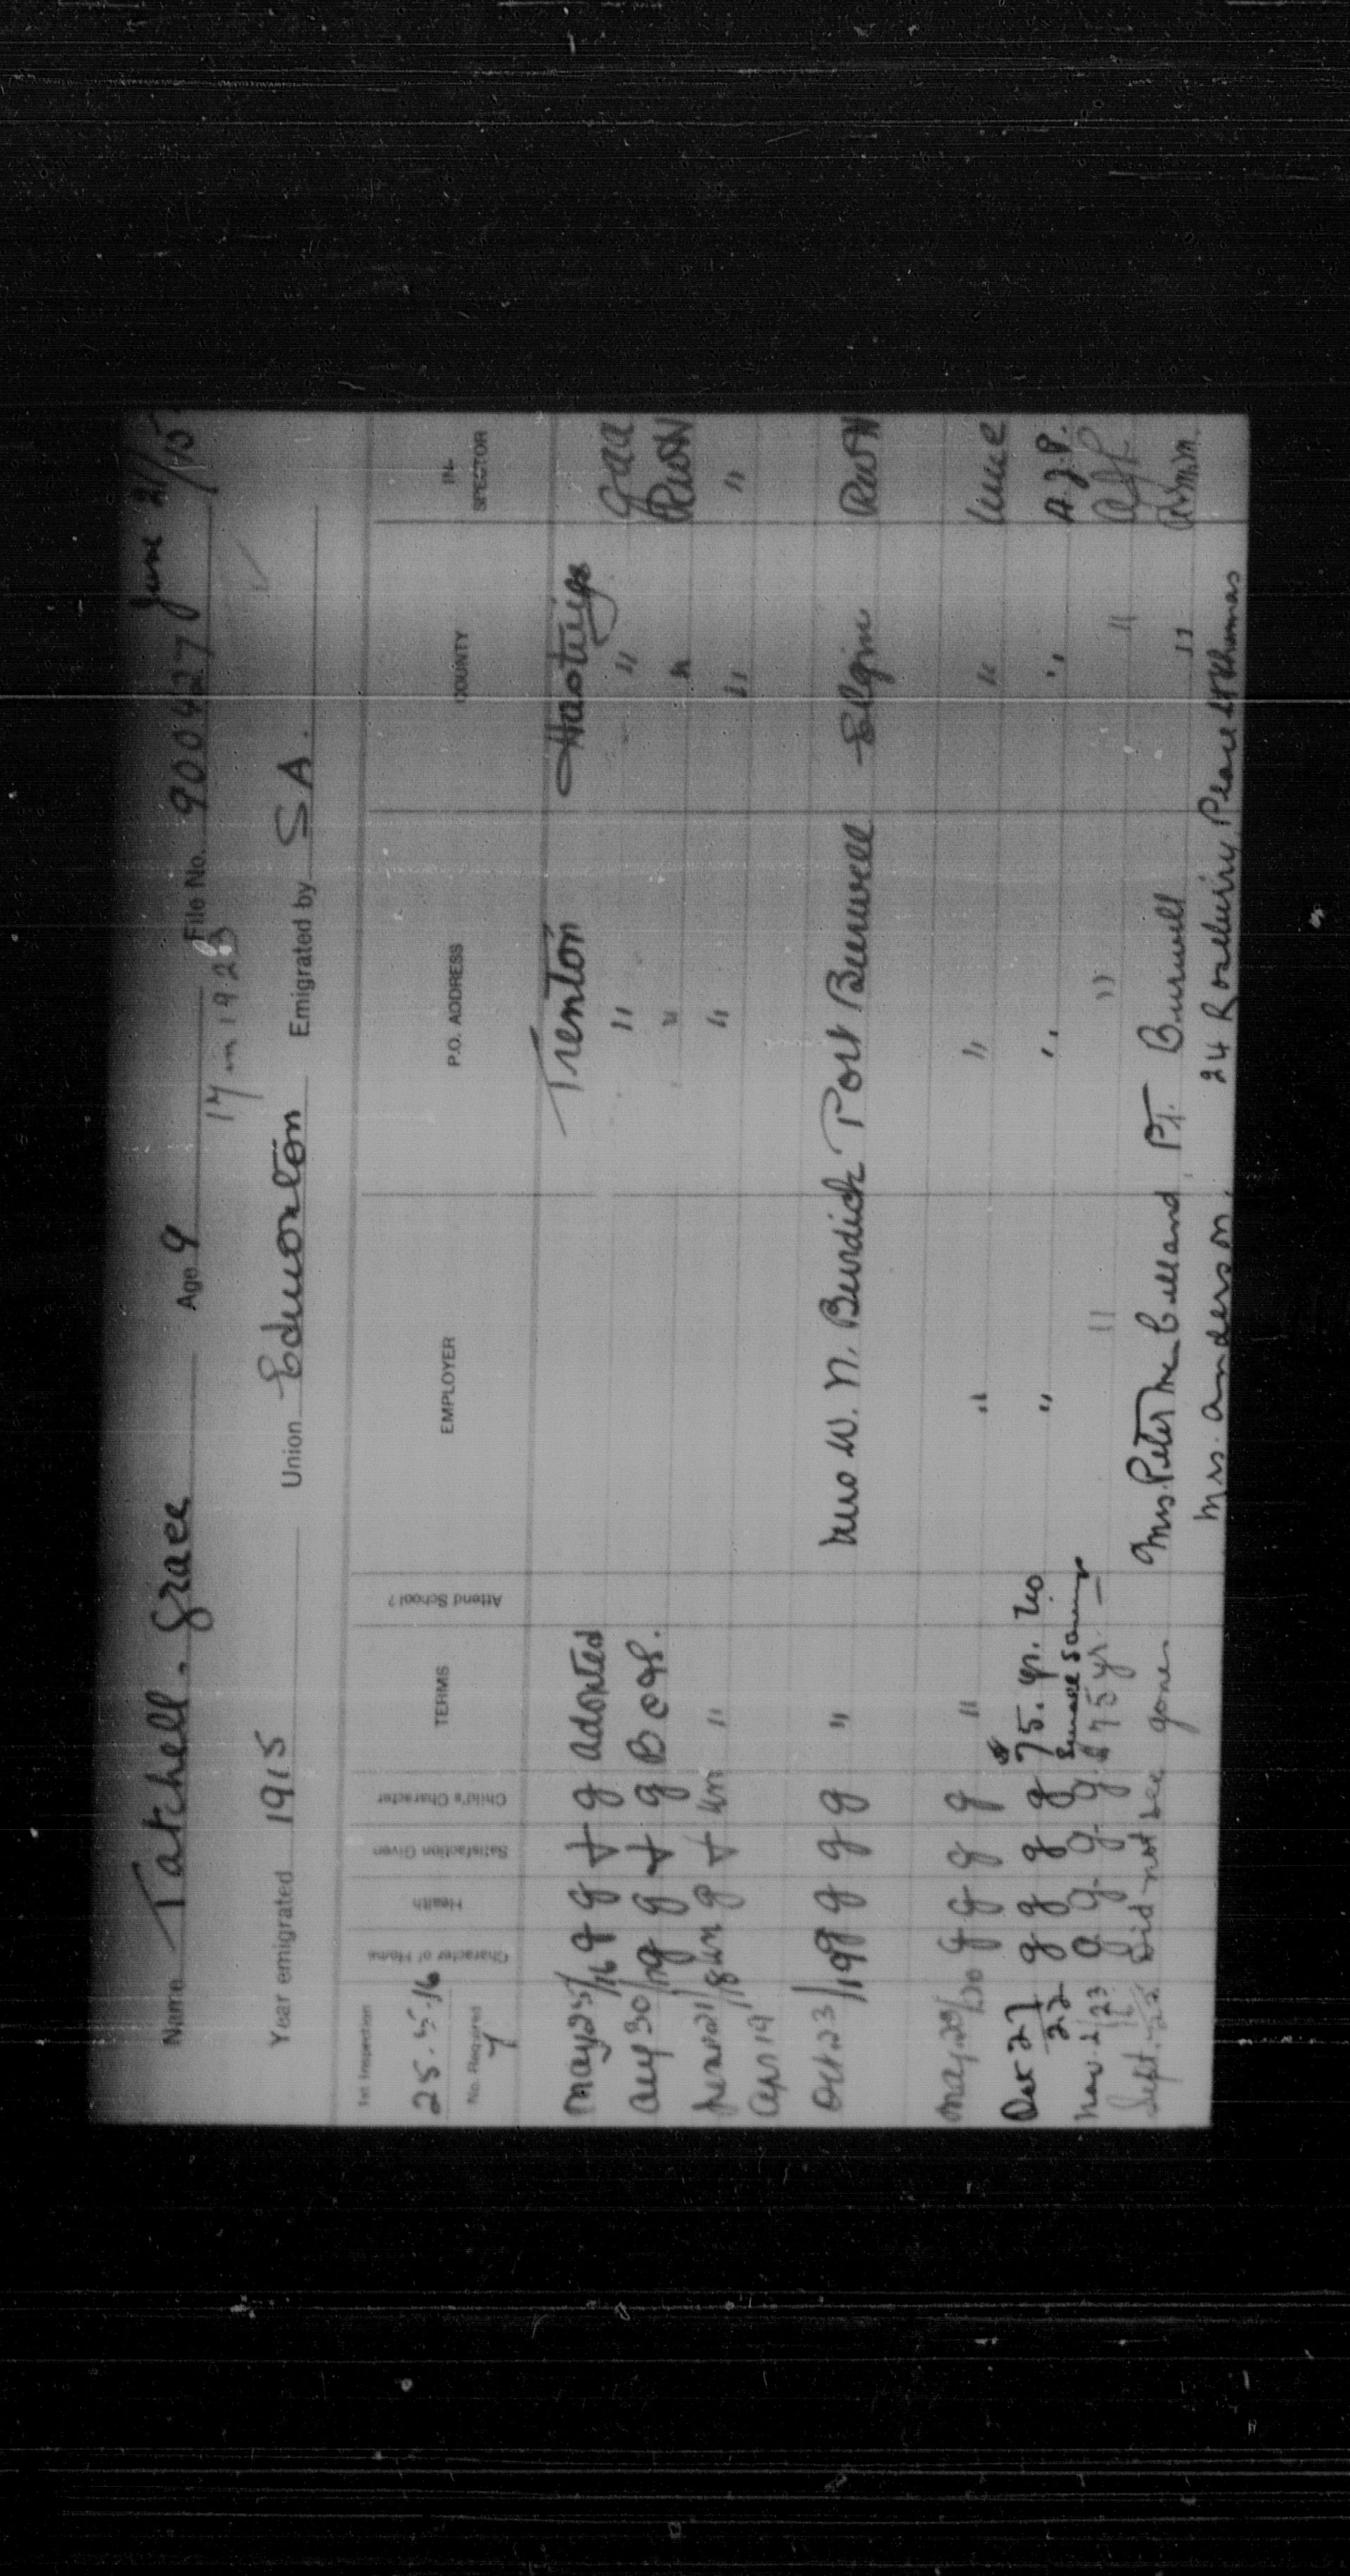 Name Tatchell, Grace Age 9 File No. 900427 June 21/15
17 in 1923
Year emigrated 1915 Union Edmonton Emigrated by S.A.
1st Inspection 25.5.16 No. Required 7 Character of Home Health Satisfaction Given Child's Character TERMS Attend School? EMPLOYER P.O. ADDRESS COUNTY IN- SPECTOR
May 25/16 g g + g adopted Trenton Hastings
Aug 30/17 g g + g B C & S. " " RWH
21/18 g + " " " "
Apr 19
Oct 23/19 g g g g " Mrs W. N. Burdick Port Burwell Elgin RWH
May 20/20 g g g g " " " "
Dec 27/22 g g g g $75. yr. No " " " A.J.P.
Nov. 2/23 g g g g $75 yr. " " "
Sept. Did not see gone Mrs. Peter McClelland Pt. Burwell "
Mrs. Anderson. 24 Rosebury Place St Thomas